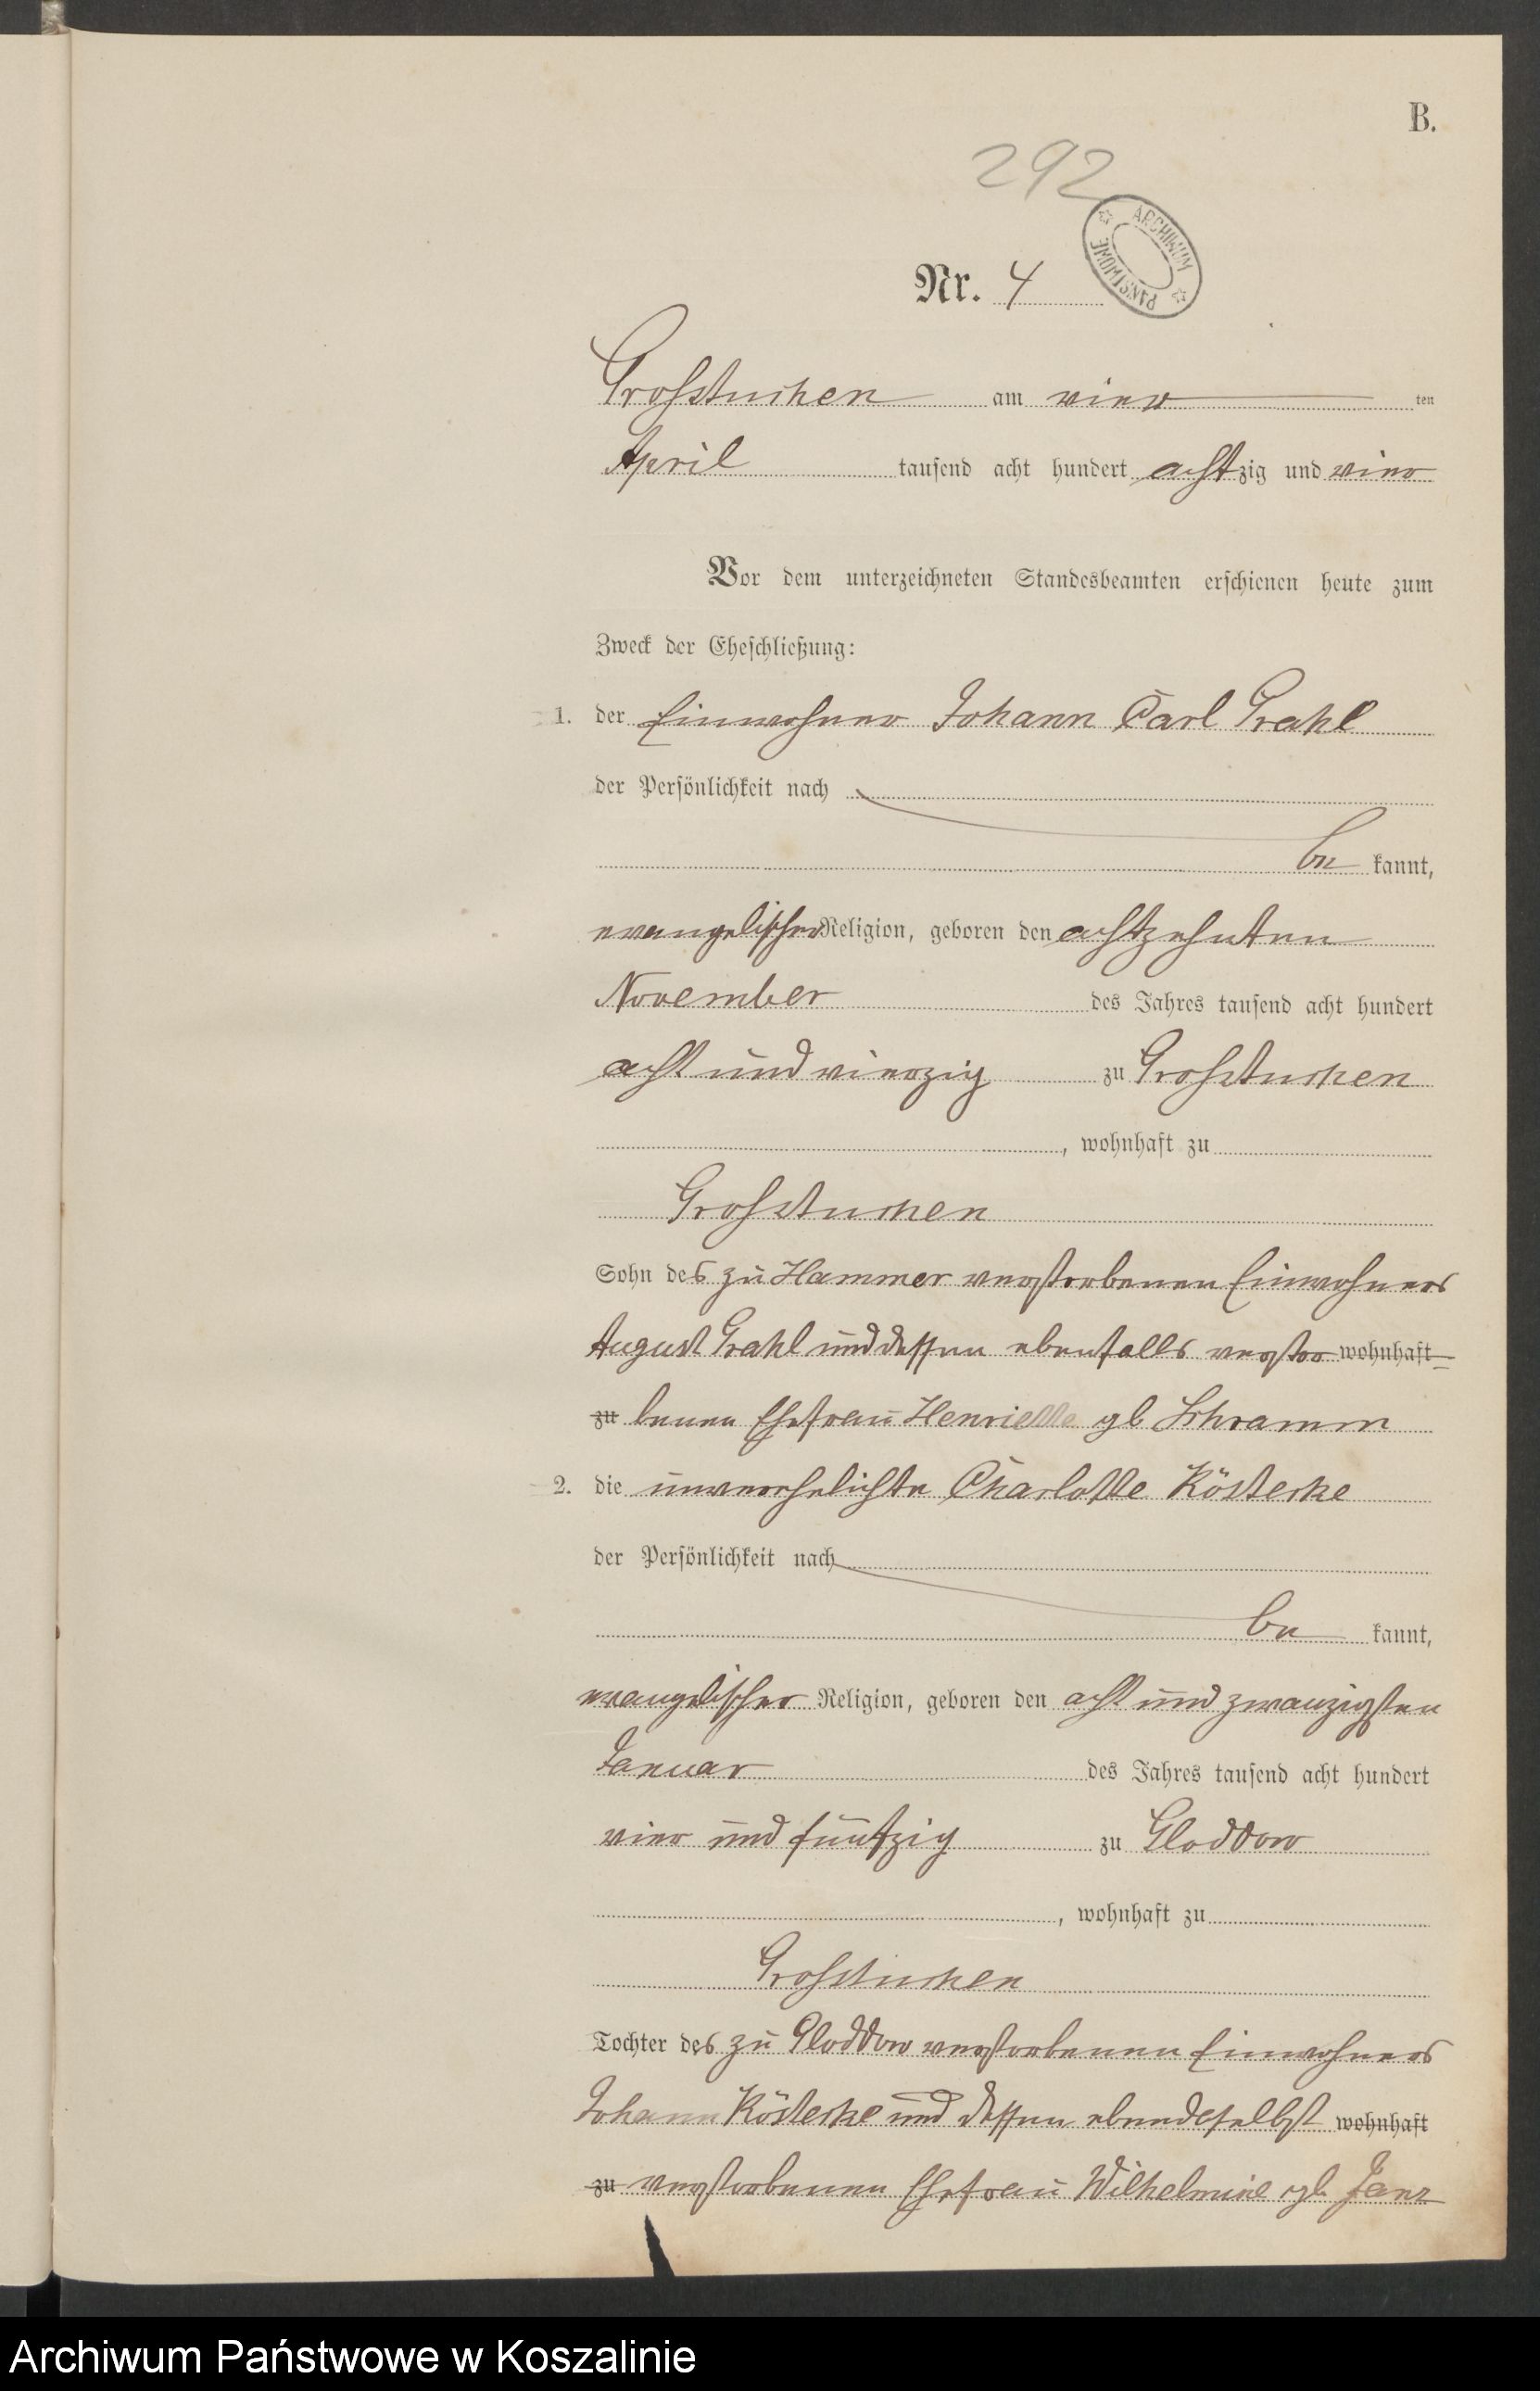 B.
292
ARCHIWUM PAŃSTWOWE
Nr. 4
Grosstuchen am vier ten
April tausend acht hundert achtzig und vier
Vor dem unterzeichneten Standesbeamten erschienen heute zum
Zweck der Eheschließung:
1. der Einwohner Johann Carl Grahl
der Persönlichkeit nach
be kannt,
evangelischer Religion, geboren den achtzehnten
November des Jahres tausend acht hundert
acht und vierzig zu Grosstuchen
, wohnhaft zu
Grosstuchen
Sohn des zu Hammer verstorbenen Einwohners
August Grahl und dessen ebenfalls verstor wohnhaft
zu benen Ehefrau Henriette gb Schramm
2. die unverehelichte Charlotte Kösterke
der Persönlichkeit nach
be kannt,
evangelischer Religion, geboren den acht und zwanzigsten
Januar des Jahres tausend acht hundert
vier und fünfzig zu Gloddow
, wohnhaft zu
Grosstuchen
Tochter des zu Gloddow verstorbenen Einwohners
Johann Kösterke und dessen ebendaselbst wohnhaft
zu verstorbenen Ehefrau Wilhelmine gb Janz
Archiwum Państwowe w Koszalinie